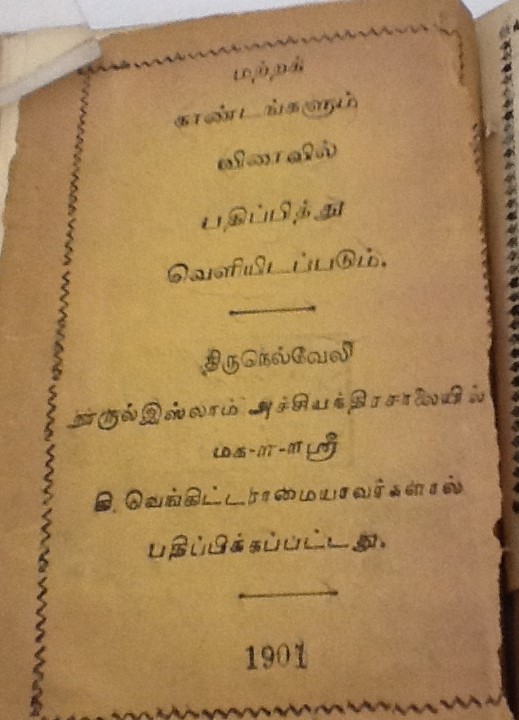 மற்றக்
காண்டங்களும்
விரைவில்
பதிப்பித்து
வெளியிடப்படும்.
திருநெல்வேலி
நூருல்இஸ்லாம் அச்சியந்திரசாலையில்
மக-ா-ாஸ்ரீ
கி. வெங்கிட்டராமையரவர்களால்
பதிப்பிக்கப்பட்டது.
1901